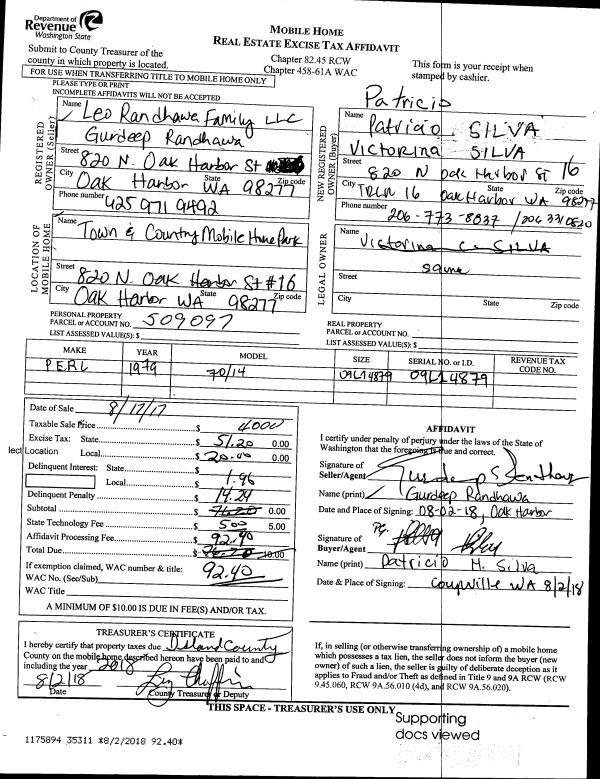 Department of
Revenue
Washington State
MOBILE HOME
REAL ESTATE EXCISE TAX AFFIDAVIT
Submit to County Treasurer of the
county in which property is located.
Chapter 82.45 RCW
Chapter 458-61A WAC
This form is your receipt when
stamped by cashier.
FOR USE WHEN TRANSFERRING TITLE TO MOBILE HOME ONLY
PLEASE TYPE OR PRINT
INCOMPLETE AFFIDAVITS WILL NOT BE ACCEPTED
REGISTERED
OWNER (Seller)
Name Leo Randhawa Family LLC
Gurdeep Randhawa
Street 820 N. Oak Harbor St
City Oak Harbor State WA Zip code 98277
Phone number 425 971 9492
LOCATION OF
MOBILE HOME
Name
Town & Country Mobile Home Park
Street 820 N. Oak Harbor St #16
City Oak Harbor State WA Zip code 98277
PERSONAL PROPERTY
PARCEL or ACCOUNT NO. 509097
LIST ASSESSED VALUE(S): $
Patricio
NEW REGISTERED
OWNER (Buyer)
Name Patricio SILVA
Victorina SILVA
Street 820 N Oak Harbor St 16
City TRLR 16 Oak Harbor State WA Zip code 98277
Phone number 206-773-8037 / 206 331 0520
LEGAL OWNER
Name
Victorina C. SILVA
same
Street
City State Zip code
REAL PROPERTY
PARCEL or ACCOUNT NO.
LIST ASSESSED VALUE(S): $
MAKE YEAR MODEL SIZE SERIAL NO. or I.D. REVENUE TAX CODE NO.
PERL 1979 70/14 09L14879 09L14879
Date of Sale 8/17/17
Taxable Sale Price $ 4000
Excise Tax: State $ 51.20 0.00
lect Location Local $ 20.00 0.00
Delinquent Interest: State $
Local $ 1.96
Delinquent Penalty $ 14.24
Subtotal $ 76.20 0.00
State Technology Fee $ 5.00 5.00
Affidavit Processing Fee $ 92.40
Total Due $ 76.20 10.00
If exemption claimed, WAC number & title: 92.40
WAC No. (Sec/Sub)
WAC Title
A MINIMUM OF $10.00 IS DUE IN FEE(S) AND/OR TAX.
AFFIDAVIT
I certify under penalty of perjury under the laws of the State of
Washington that the foregoing is true and correct.
Signature of
Seller/Agent
Name (print) Gurdeep Randhawa
Date and Place of Signing: 08-02-18, Oak Harbor
Signature of
Buyer/Agent
Name (print) Patricio M. Silva
Date & Place of Signing: Coupville WA 8/2/18
TREASURER'S CERTIFICATE
I hereby certify that property taxes due Island County
County on the mobile home described hereon have been paid to and
including the year 2018
8/2/18
Date County Treasurer or Deputy
If, in selling (or otherwise transferring ownership of) a mobile home
which possesses a tax lien, the seller does not inform the buyer (new
owner) of such a lien, the seller is guilty of deliberate deception as it
applies to Fraud and/or Theft as defined in Title 9 and 9A RCW (RCW
9.45.060, RCW 9A.56.010 (4d), and RCW 9A.56.020).
THIS SPACE - TREASURER'S USE ONLY
Supporting
docs viewed
1175894 35311 *8/2/2018 92.40*